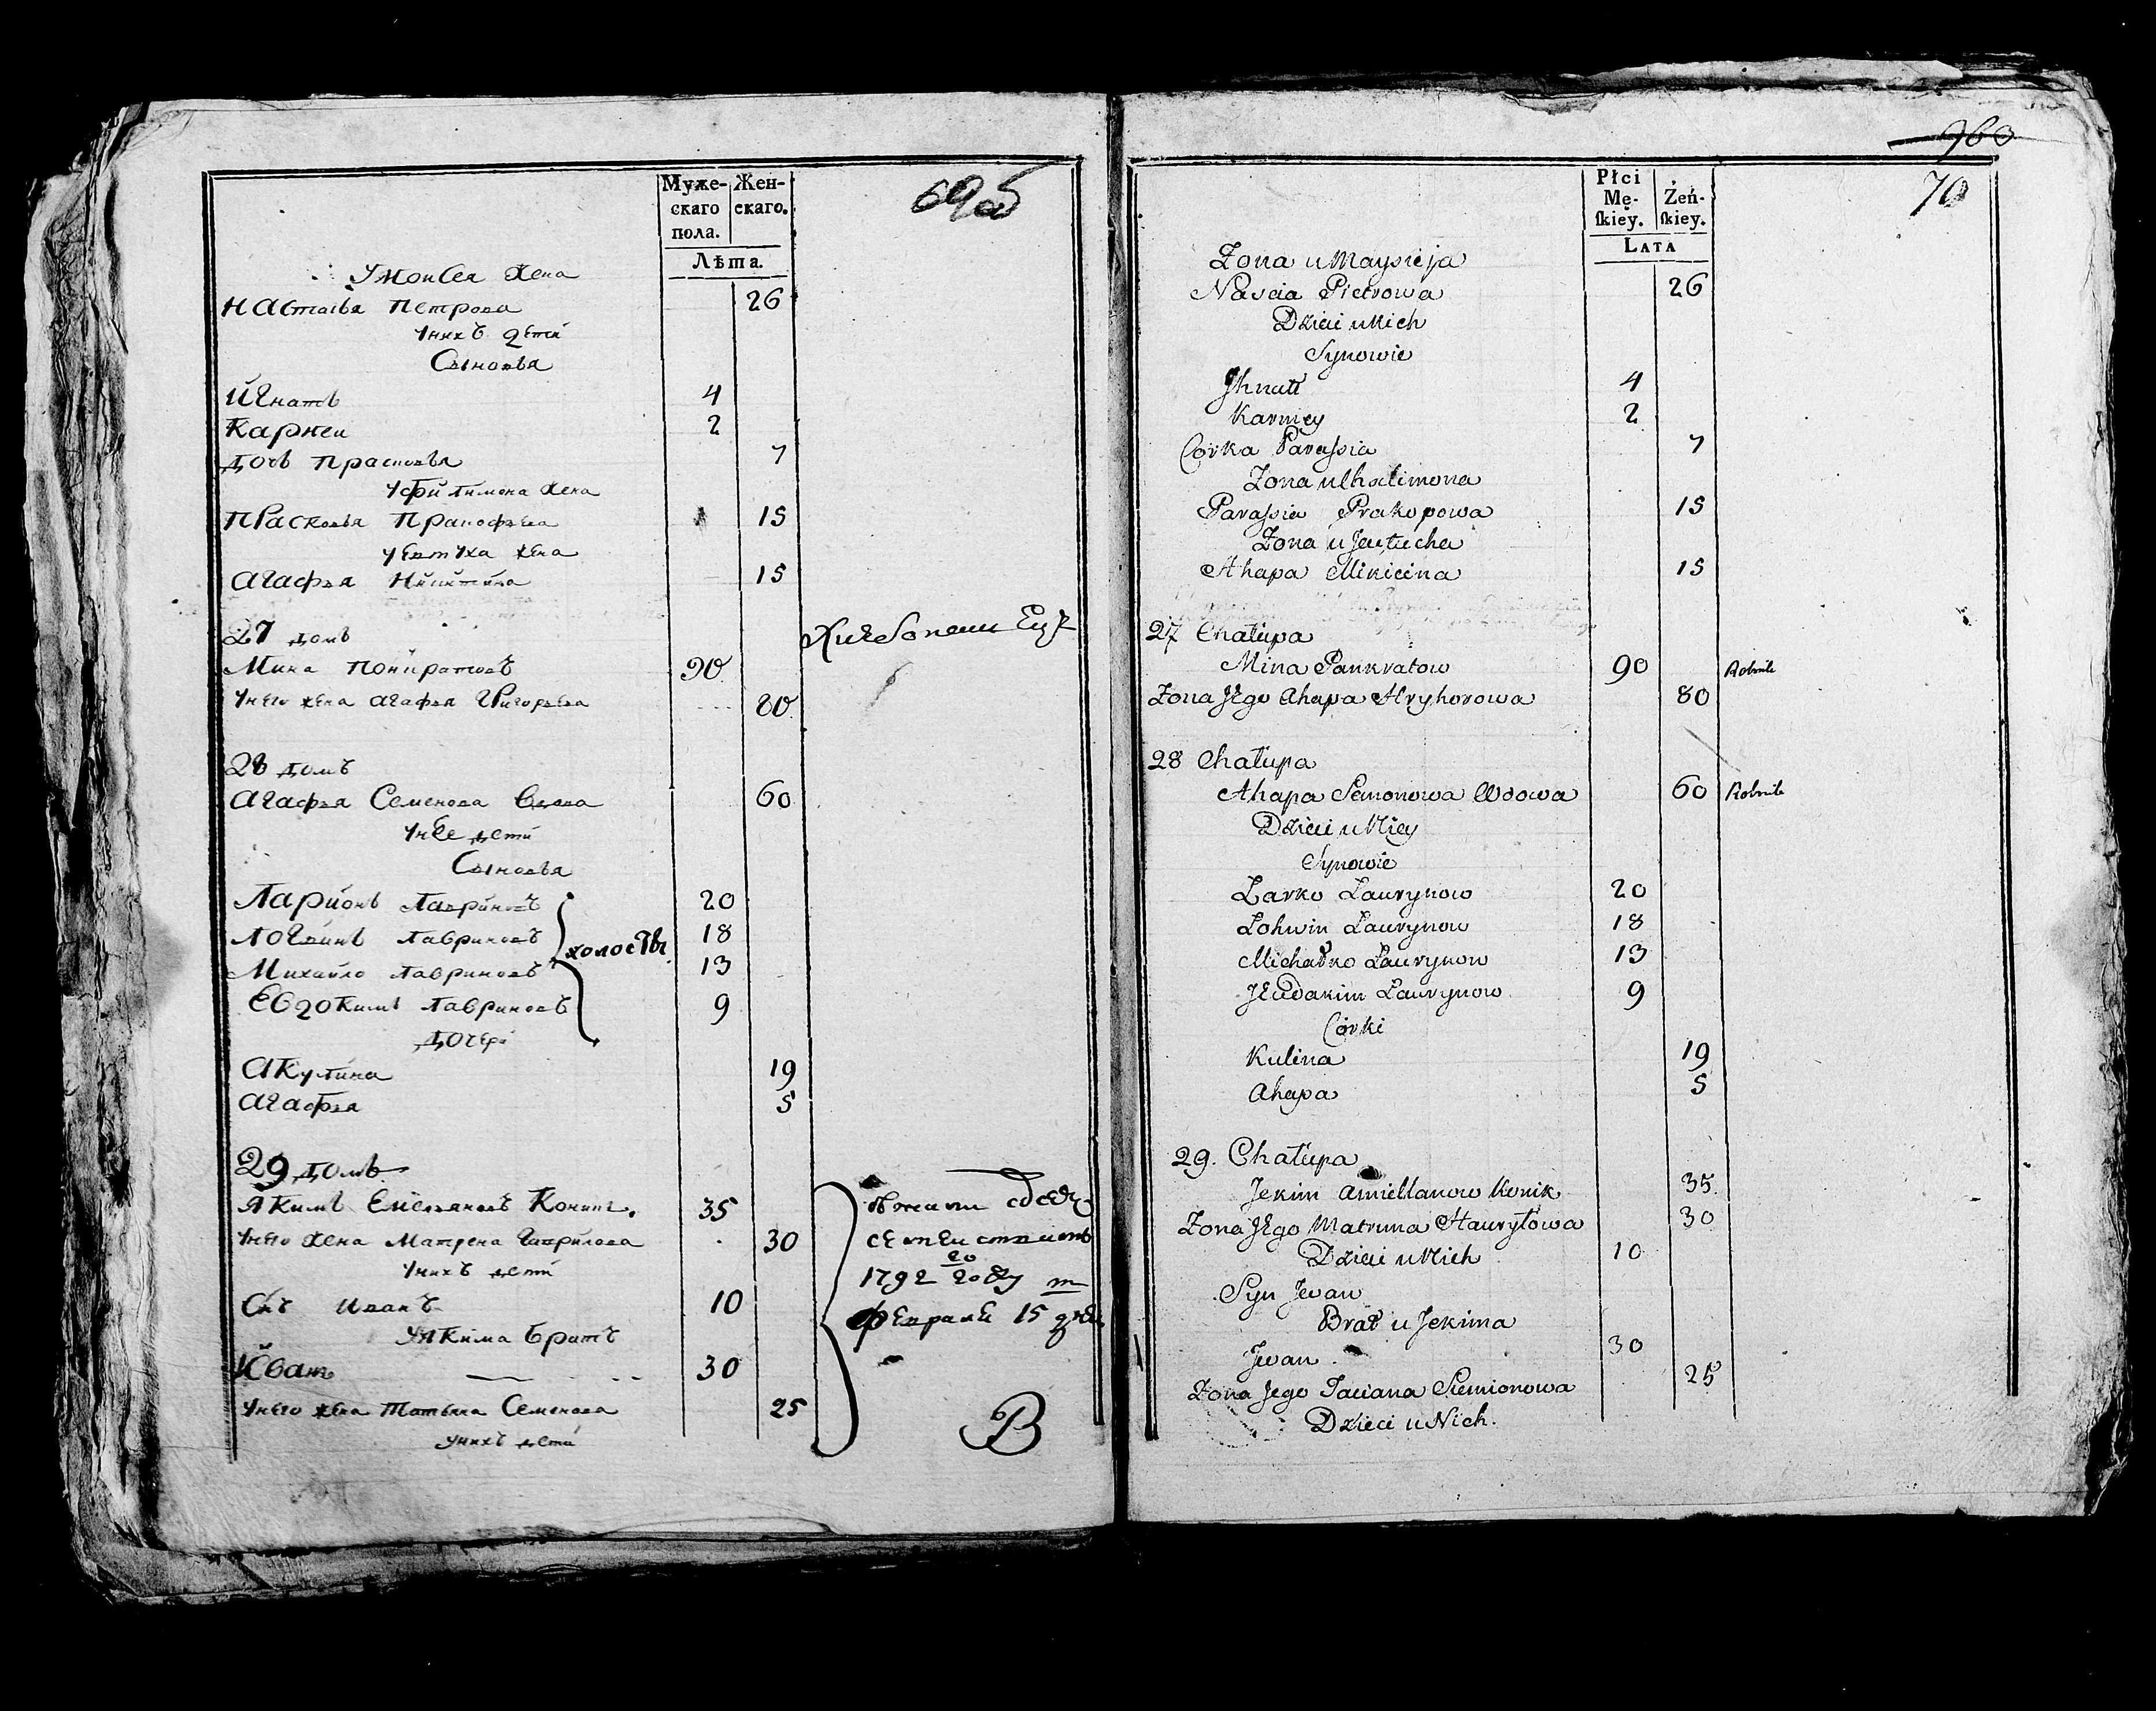 69об
Муже- Жен-
скаго скаго.
пола.
Лѣта.
У Моисея жена
Настасья Петрова 26
У нихъ дети
Сыновья
Игнатъ 4
Карней 2
Дочь Прасковья 7
У Филимона жена
Прасковья Пракофьева 15
У Евтуха жена
Агафья Никитина 15
27 домъ
Мина Понкратовъ 90
У него жена Агафья Григорьева 80
28 домъ
Агафья Семенова вдова 60
У нее дети
Сыновья
Ларионъ Лавриновъ 20
Логвинъ Лавриновъ 18
холосты
Михайло Лавриновъ 13
Евдокимъ Лавриновъ 9
Дочери
Акулина 19
Агафья 5
29 домъ
Якимъ Емельяновъ Коникъ. 35
У него жена Матрена Гаврилова 30
У нихъ дети
Сынъ Иванъ 10
У Якима братъ
Иванъ 30
У него жена Татьяна Семенова 25
У нихъ дети
бежали
1792 го году
февраля 15 дня
В
960
70
Płci
Mę- Żeń-
skiey. skiey.
Lata
Żona u Maysieja
Nascia Pietrowa 26
Dzieci u Nich
Synowie
Jhnatt 4
Karniey 2
Corka Parassia 7
Żona u Chalimona
Parassia Prakopowa 15
Żona u Jeutucha
Ahapa Mikicina 15
27 Chałupa
Mina Pankratow 90
Żona Jego Ahapa Hryhorowa 80
28 Chałupa
Ahapa Semonowa Wdowa 60
Dzieci u Niey
Synowie
Larko Laurynow 20
Lohwin Laurynow 18
Michałko Laurynow 13
Jeudakim Laurynow 9
Córki
Kulina 19
Ahapa 5
29. Chałupa
Jekim Amiellanow Konik 35
Żona Jego Matruna Hauryłowa 30
Dzieci u Nich 10
Syn Jwan
Brat u Jekima
Jwan 30
Żona Jego Taciana Siemionowa 25
Dzieci u Nich.